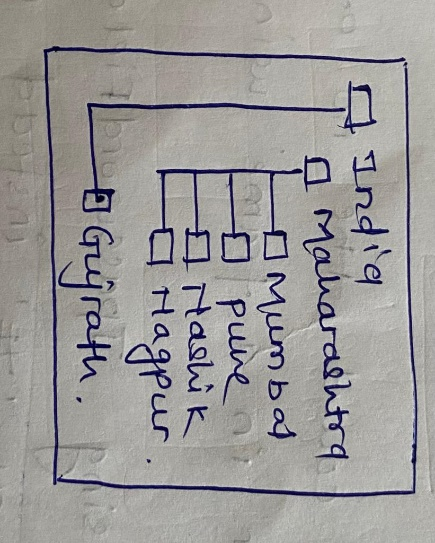 India
Maharashtra
Mumbai
pune
Nashik
Nagpur.
Gujrath.